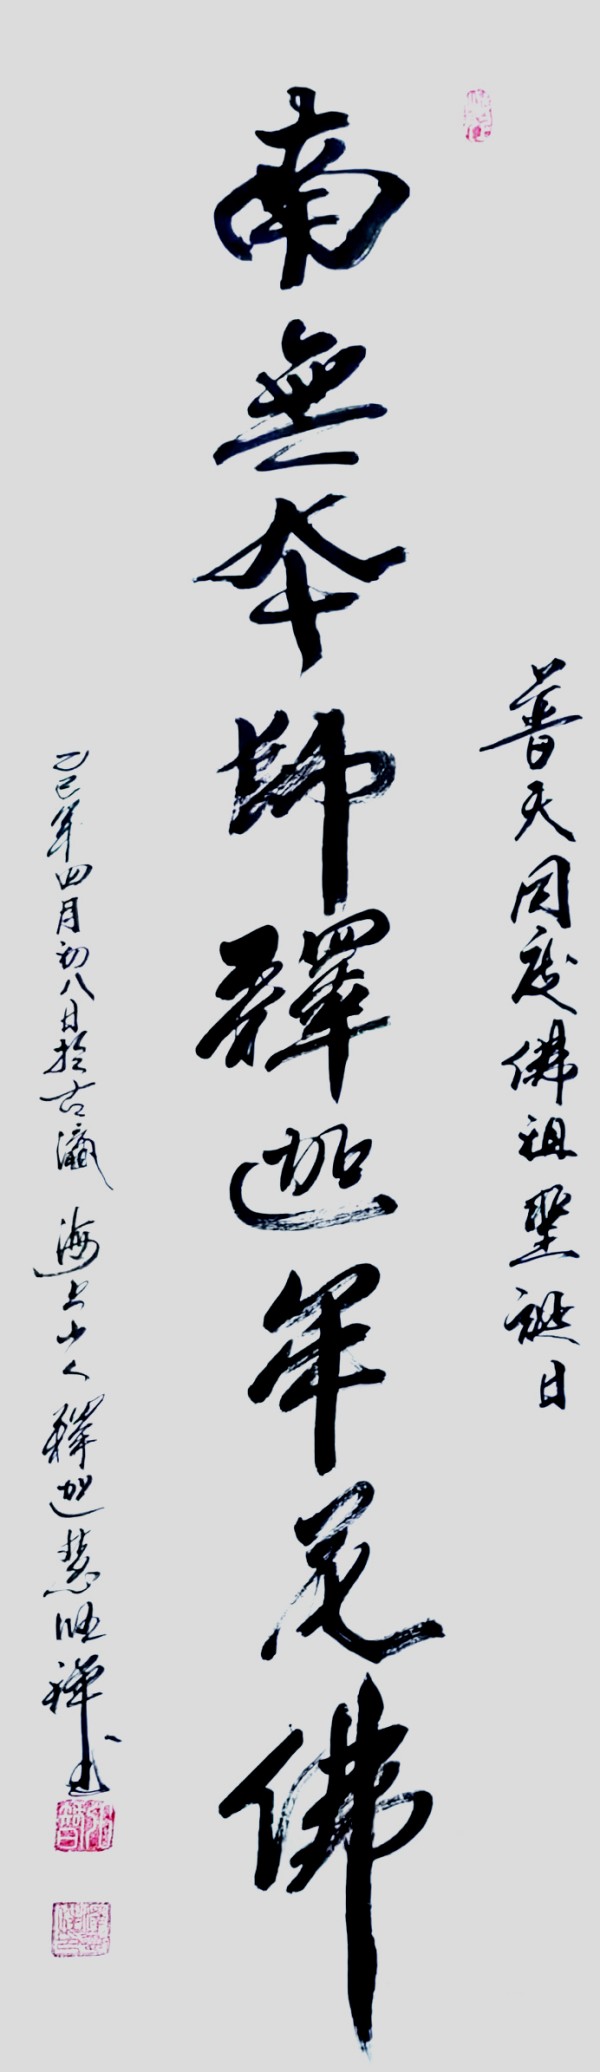 普天同慶佛祖聖誕日
南無本師釋迦牟尼佛
乙巳年四月初八日於古瀛 海上小人 釋迦慧 禪書